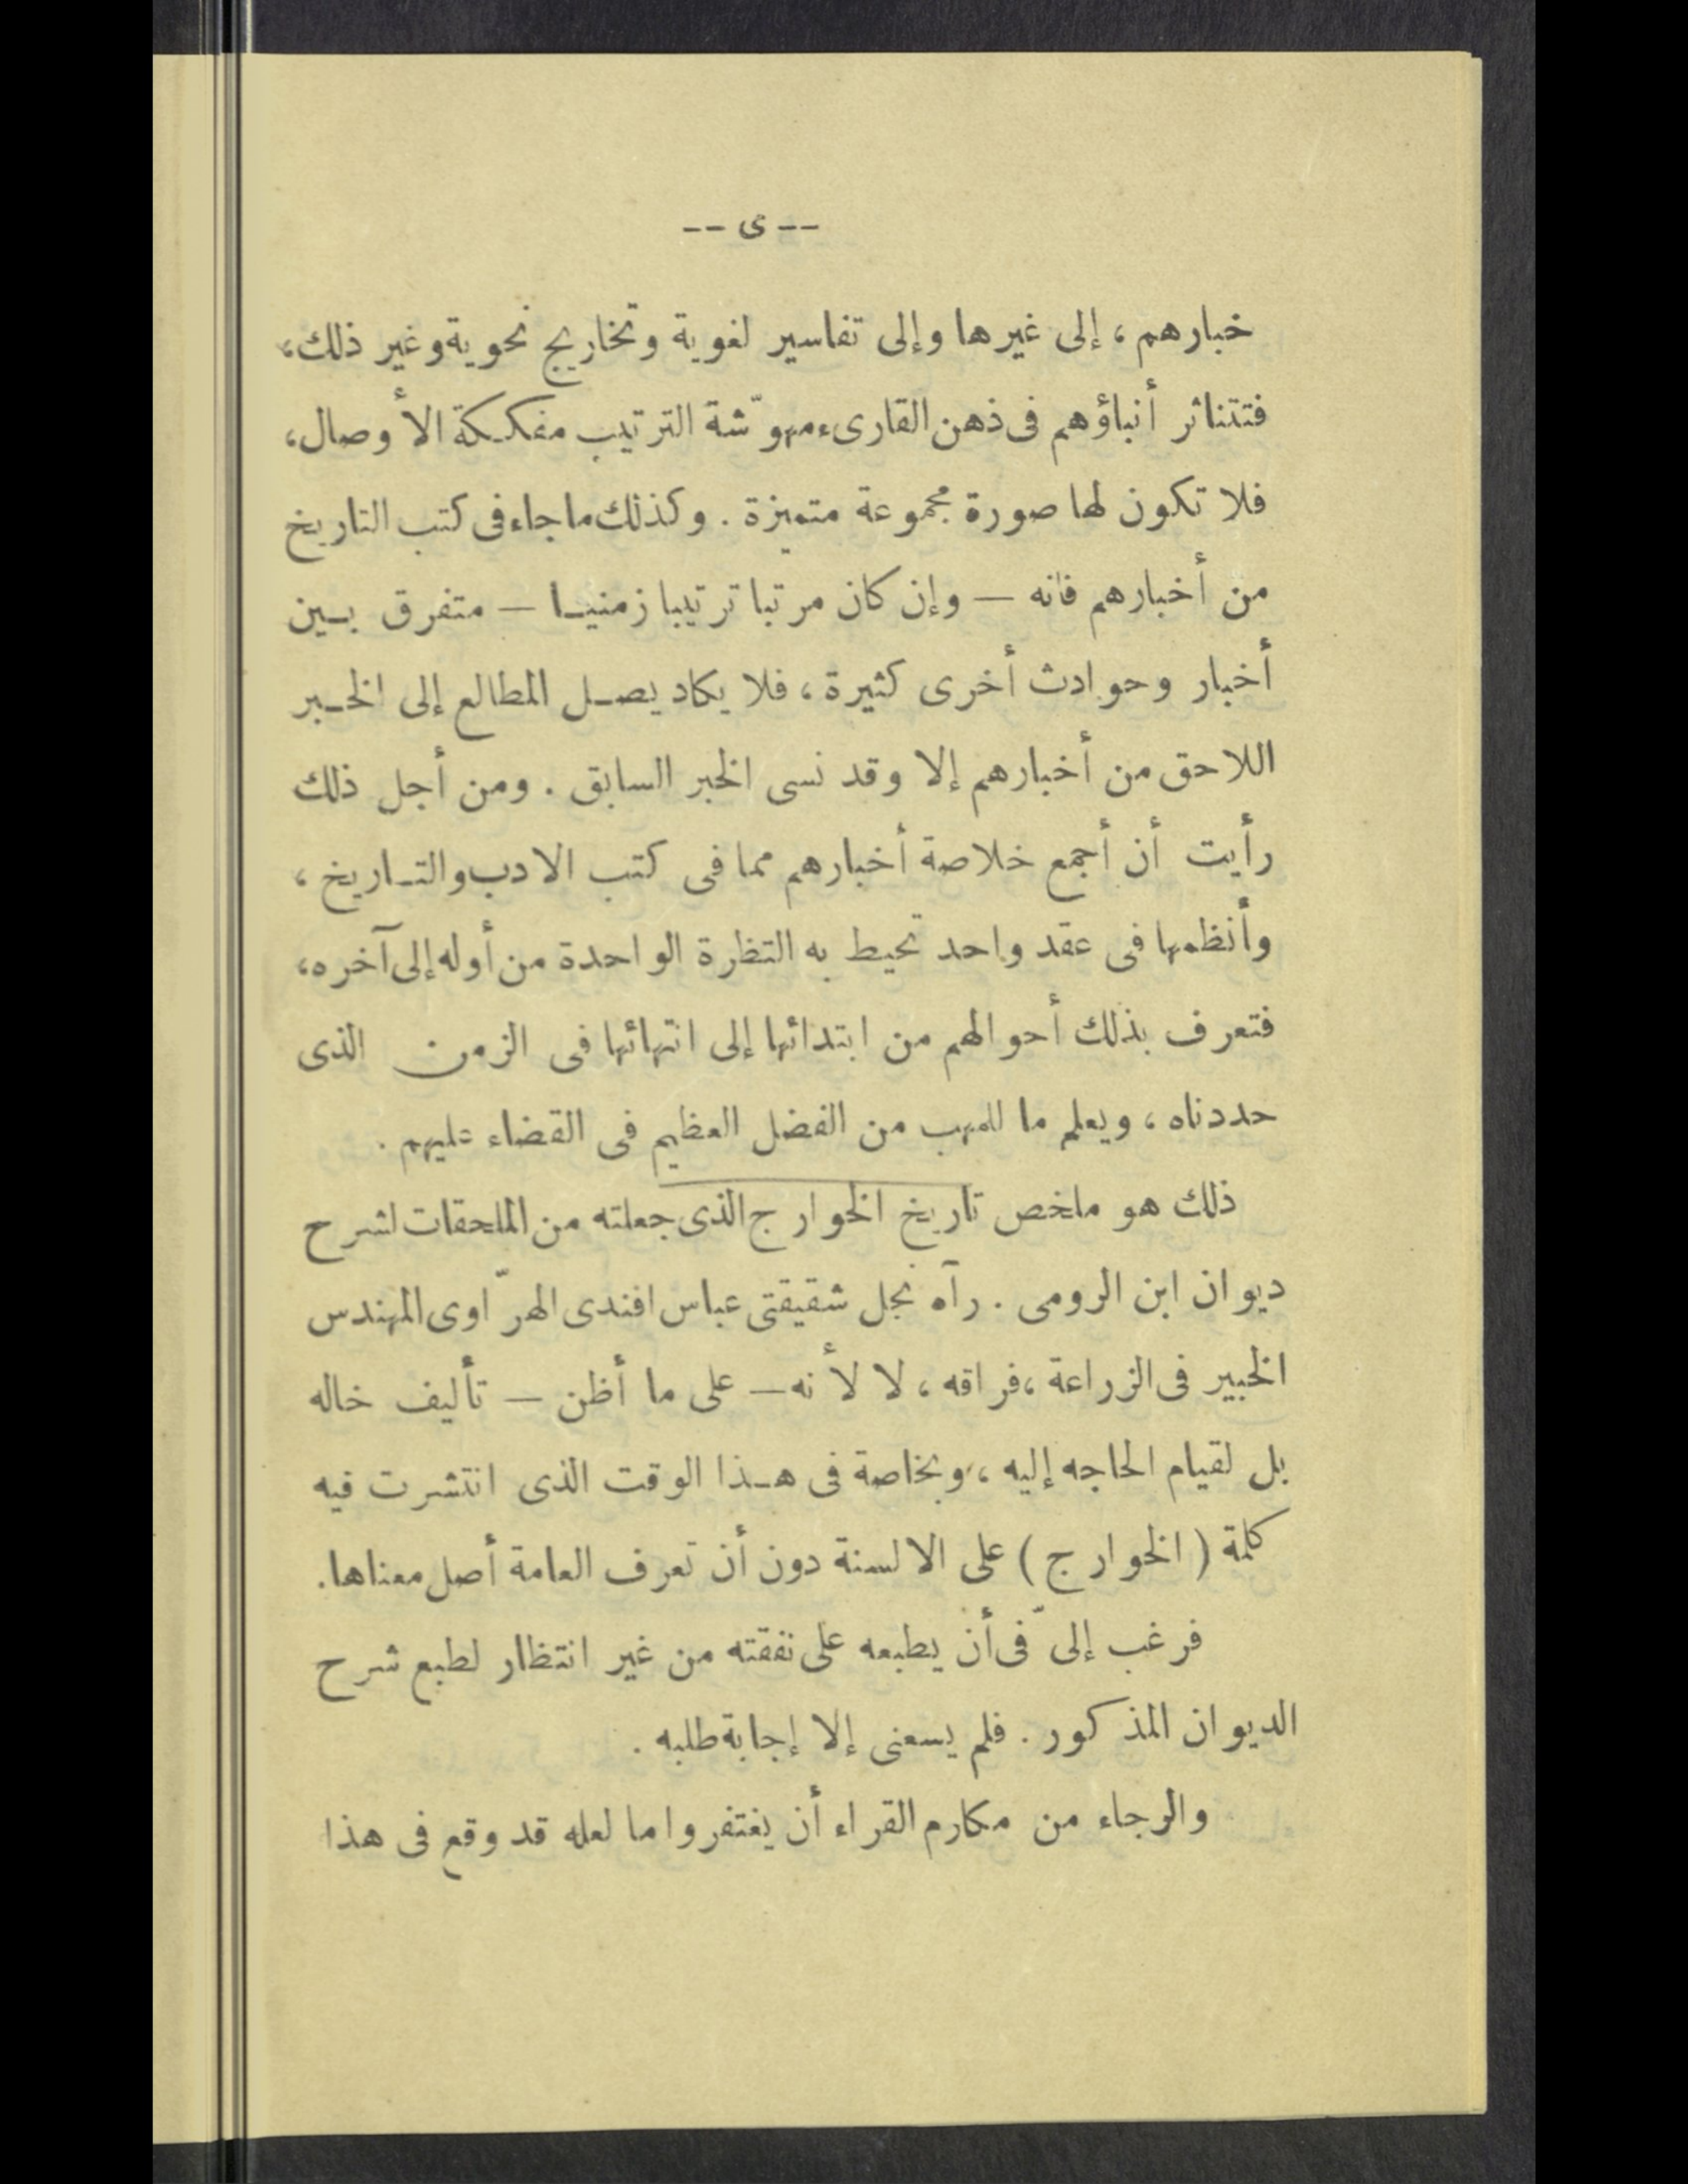 -- ى --
خبارهم ، إلى غيرها وإلى تفاسير لغوية وتخاريج نحوية وغير ذلك،
فتتناثر أنباؤهم فى ذهن القارىء مهوّشة الترتيب مفككة الأوصال،
فلا تكون لها صورة مجموعة متميزة . وكذلك ما جاء فى كتب التاريخ
من أخبارهم فانه — وإن كان مرتبا ترتيبا زمنيا — متفرق بين
أخبار وحوادث أخرى كثيرة ، فلا يكاد يصل المطالع إلى الخبر
اللاحق من أخبارهم إلا وقد نسى الخبر السابق . ومن أجل ذلك
رأيت أن أجمع خلاصة أخبارهم مما فى كتب الادب والتاريخ ،
وأنظمها فى عقد واحد تحيط به التظرة الواحدة من أوله إلى آخره،
فتعرف بذلك أحوالهم من ابتدائها إلى انتهائها فى الزمن الذى
حددناه ، ويعلم ما للمهب من الفضل العظيم فى القضاء عليهم .
ذلك هو ملخص تاريخ الخوارج الذى جعلته من الملحقات لشرح
ديوان ابن الرومى . رآه نجل شقيقتى عباس افندى الهرّاوى المهندس
الخبير فى الزراعة ، فراقه ، لا لأنه — على ما أظن — تأليف خاله
بل لقيام الحاجه إليه ، وبخاصة فى هذا الوقت الذى انتشرت فيه
كلمة ( الخوارج ) على الالسنة دون أن تعرف العامة أصل معناها.
فرغب إلىّ فى أن يطبعه على نفقته من غير انتظار لطبع شرح
الديوان المذكور . فلم يسعنى إلا إجابة طلبه .
والرجاء من مكارم القراء أن يغتفروا ما لعله قد وقع فى هذا